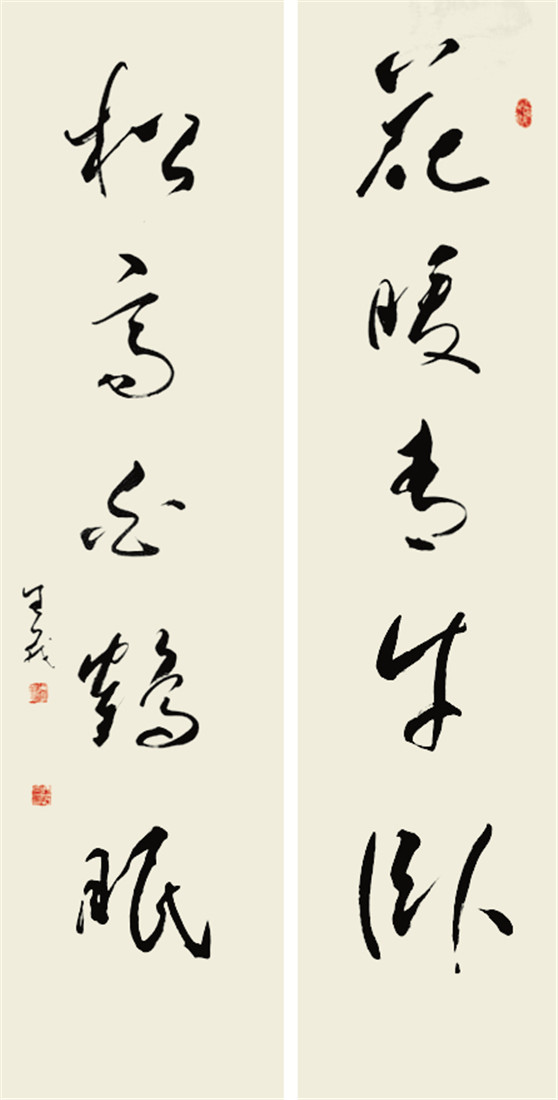 花暖青牛卧
松高白鹤眠